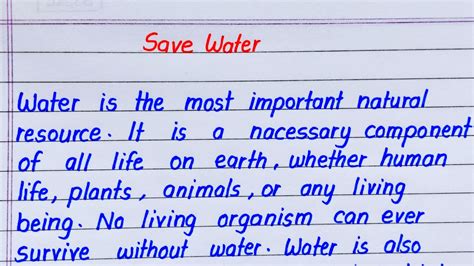 Save Water
Water is the most important natural
resource. It is a nacessary component
of all life on earth, whether human
life, plants, animals, or any living
being. No living organism can ever
survive without water. Water is also